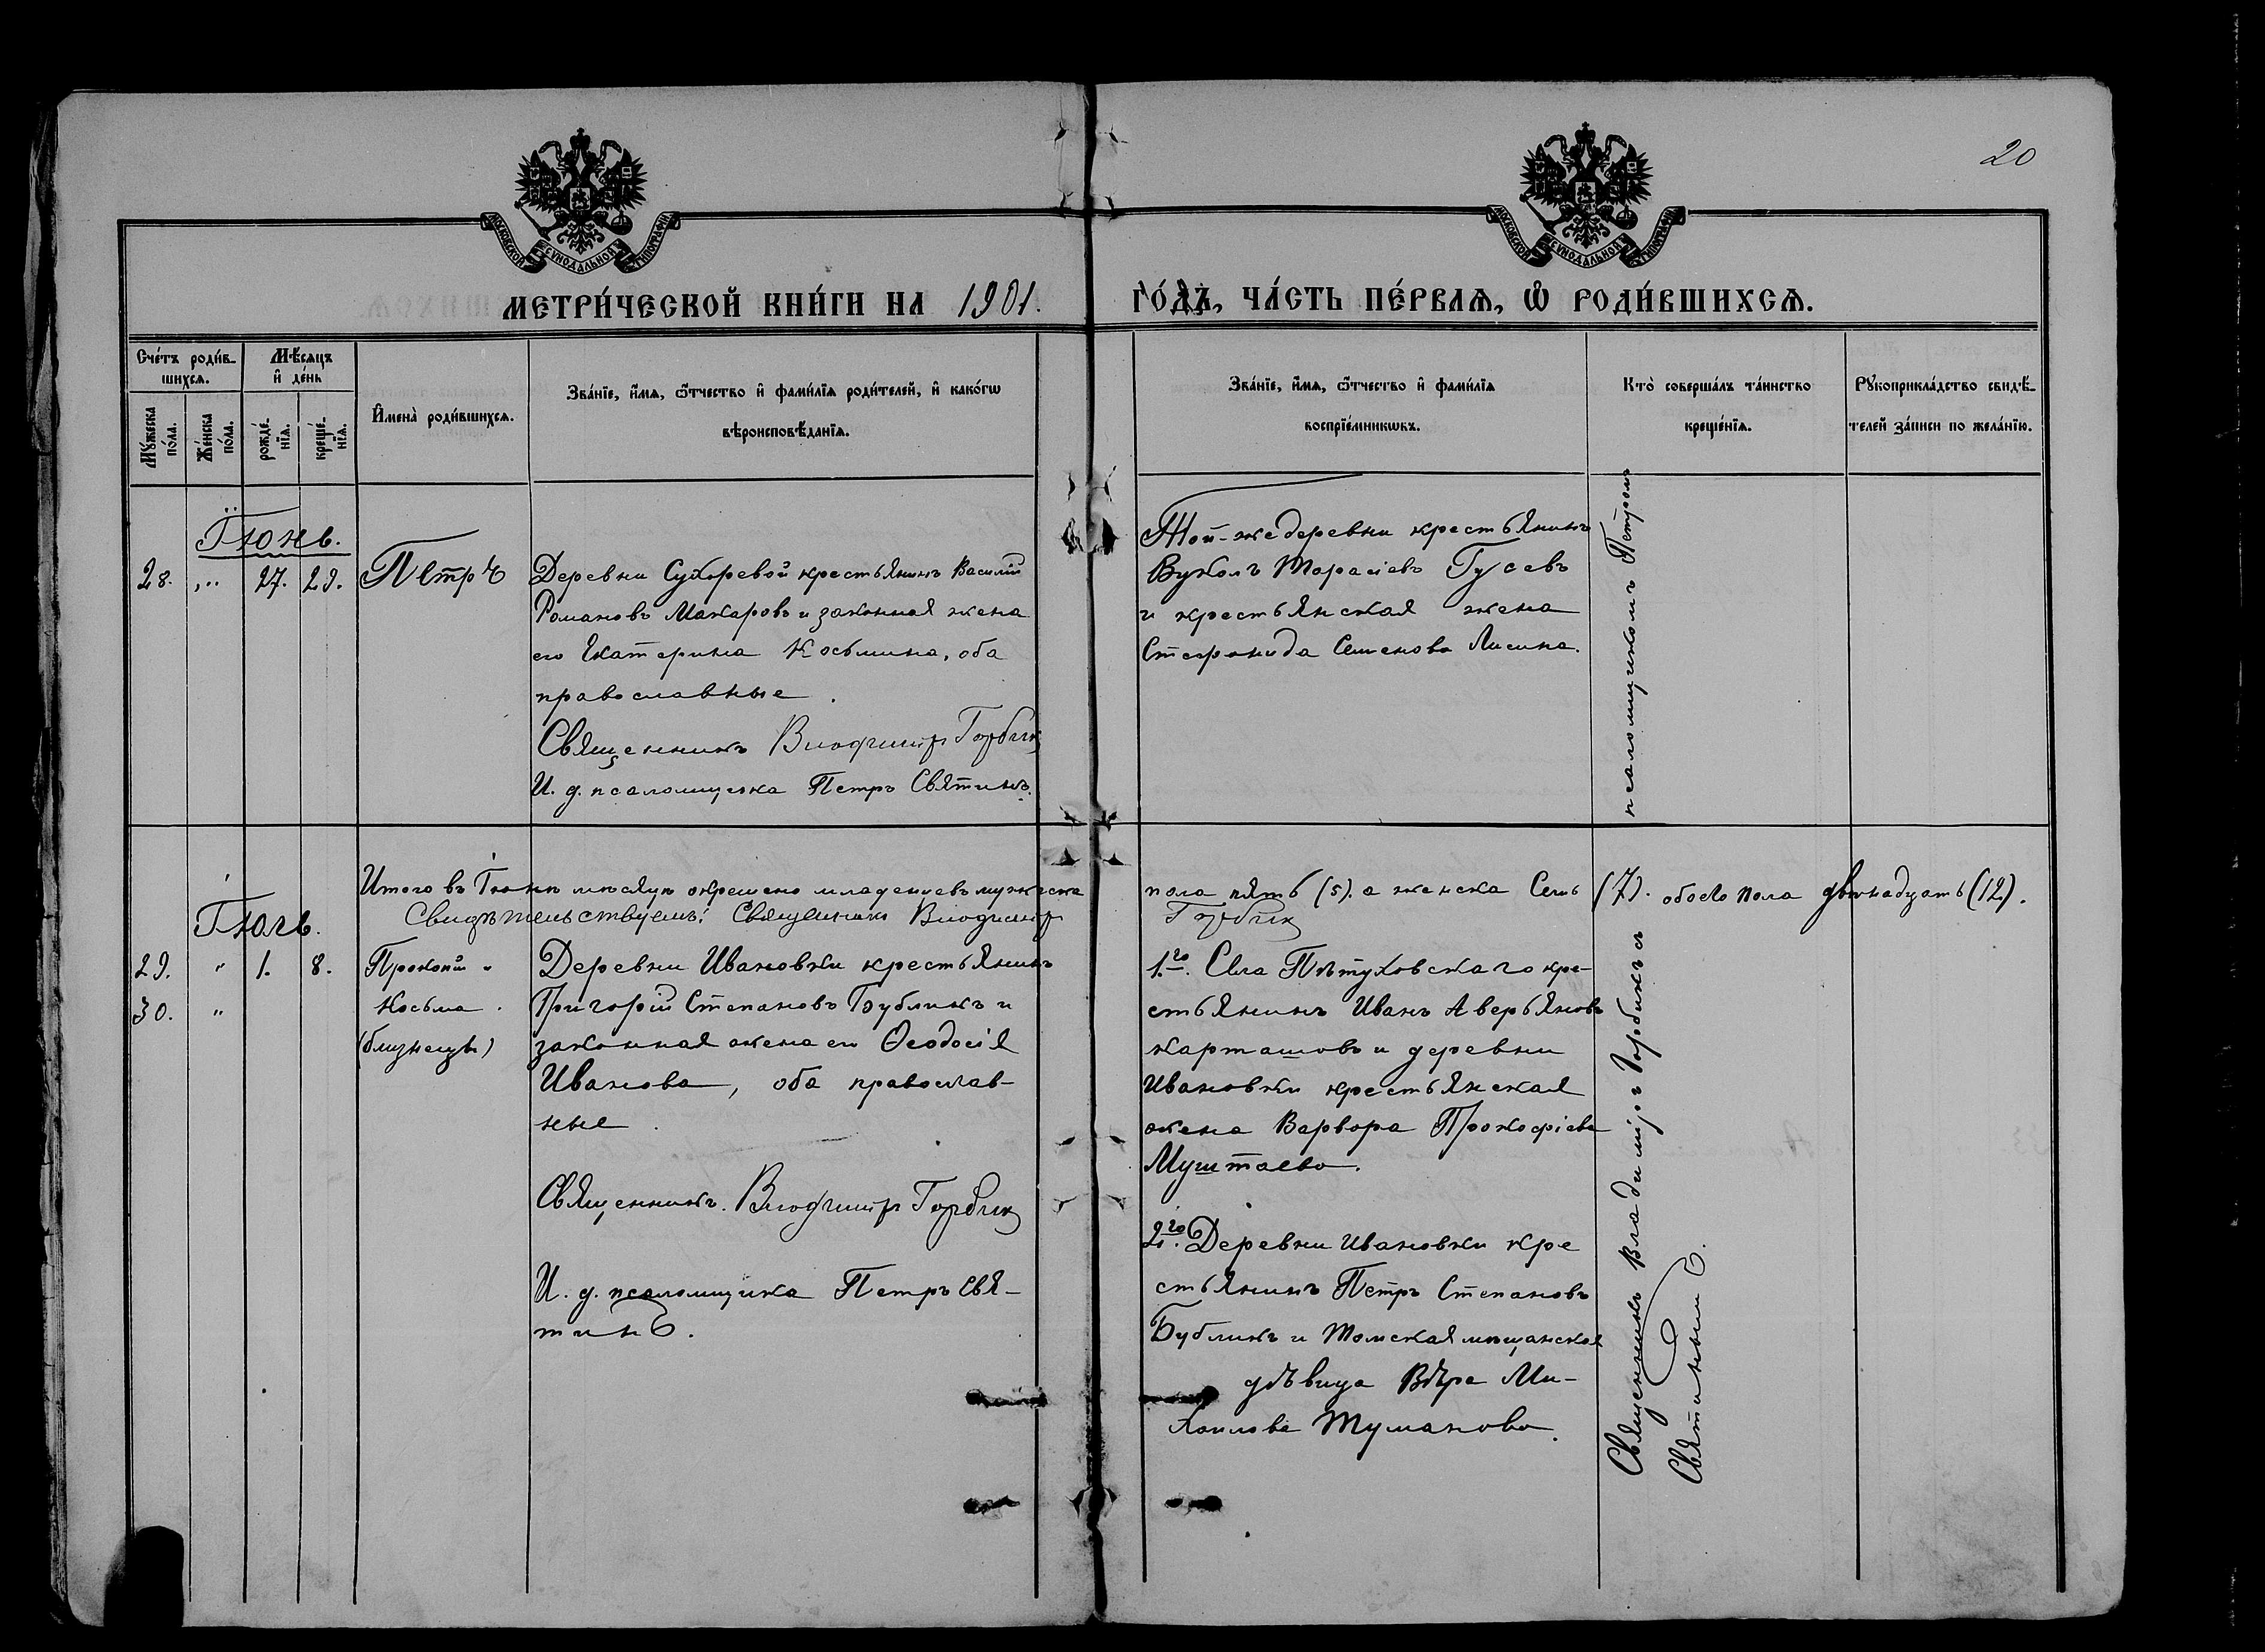 20
МОСКОВСКОЙ СѴНОДАЛЬНОЙ ТИПОГРАФІИ
МОСКОВСКОЙ СѴНОДАЛЬНОЙ ТИПОГРАФІИ
МЕТРИ́ЧЕСКОЙ КНИ́ГИ НА 1901. ГО́ДЪ, ЧА́СТЬ ПЕ́РВАѦ, Ѽ РОДИ́ВШИХСѦ.
Сче́тъ роди́в-
шихсѧ.
Мѣ́сѧцъ
и҆ де́нь
Мꙋ́жеска по́ла.
Же́нска по́ла.
рожде́-нїѧ.
креще́-нїѧ.
И҆мена̀ роди́вшихсѧ.
Зва́нїе, и҆́мѧ, ѻ҆́тчество и҆ фами́лїѧ роди́телей, и҆ како́гѡ
вѣроисповѣ́данїѧ.
Зва́нїе, и҆́мѧ, ѻ҆́тчество и҆ фами́лїѧ
воспрїе́мникѡвъ.
Кто̀ соверша́лъ та́инство
креще́нїѧ.
Рꙋкоприкла́дство свидѣ́-
телей за́писи по жела́нїю.
Іюнь.
28. „ 27. 29. Петръ
Деревни Сухоревой крестьянинъ Василій
Романовъ Макаровъ и законная жена
его Екатерина Косьмина, оба
православные.
Священникъ Владиміръ Горбикъ
И. д. псаломщика Петръ Святинъ.
Той-же деревни крестьянинъ
Вуколъ Тарасіевъ Гусевъ
и крестьянская жена
Стефанида Семенова Лисина.
Итого въ Іюнѣ мѣсяцѣ окрещено младенцевъ мужеска пола пять (5). а женска Семь (7). обоего пола двѣнадцать (12).
Свидѣтельствуемъ: Священникъ Владиміръ Горбикъ
Іюль.
29. „ 1. 8. Прокопій и
30. „ Косьма.
(близнецы)
Деревни Ивановки крестьянинъ
Григорій Степановъ Бубликъ и
законная жена его Ѳеодосія
Иванова, оба православ-
ные.
Священникъ. Владиміръ Горбикъ
И. д. псаломщика Петръ Свя-
тинъ.
1.го Села Пѣтуховскаго кре-
стьянинъ Иванъ Аверьяновъ
Карташовъ и деревни
Ивановки крестьянская
жена Варвара Прокофіева
Муштаева.
2го. Деревни Ивановки кре
стьянинъ Петръ Степановъ
Бубликъ и Томская мѣщанская
дѣвица Вѣра Ми-
хаилова Туманова.
Священникъ Владиміръ Горбикъ съ псаломщикомъ Петромъ
Святинымъ.